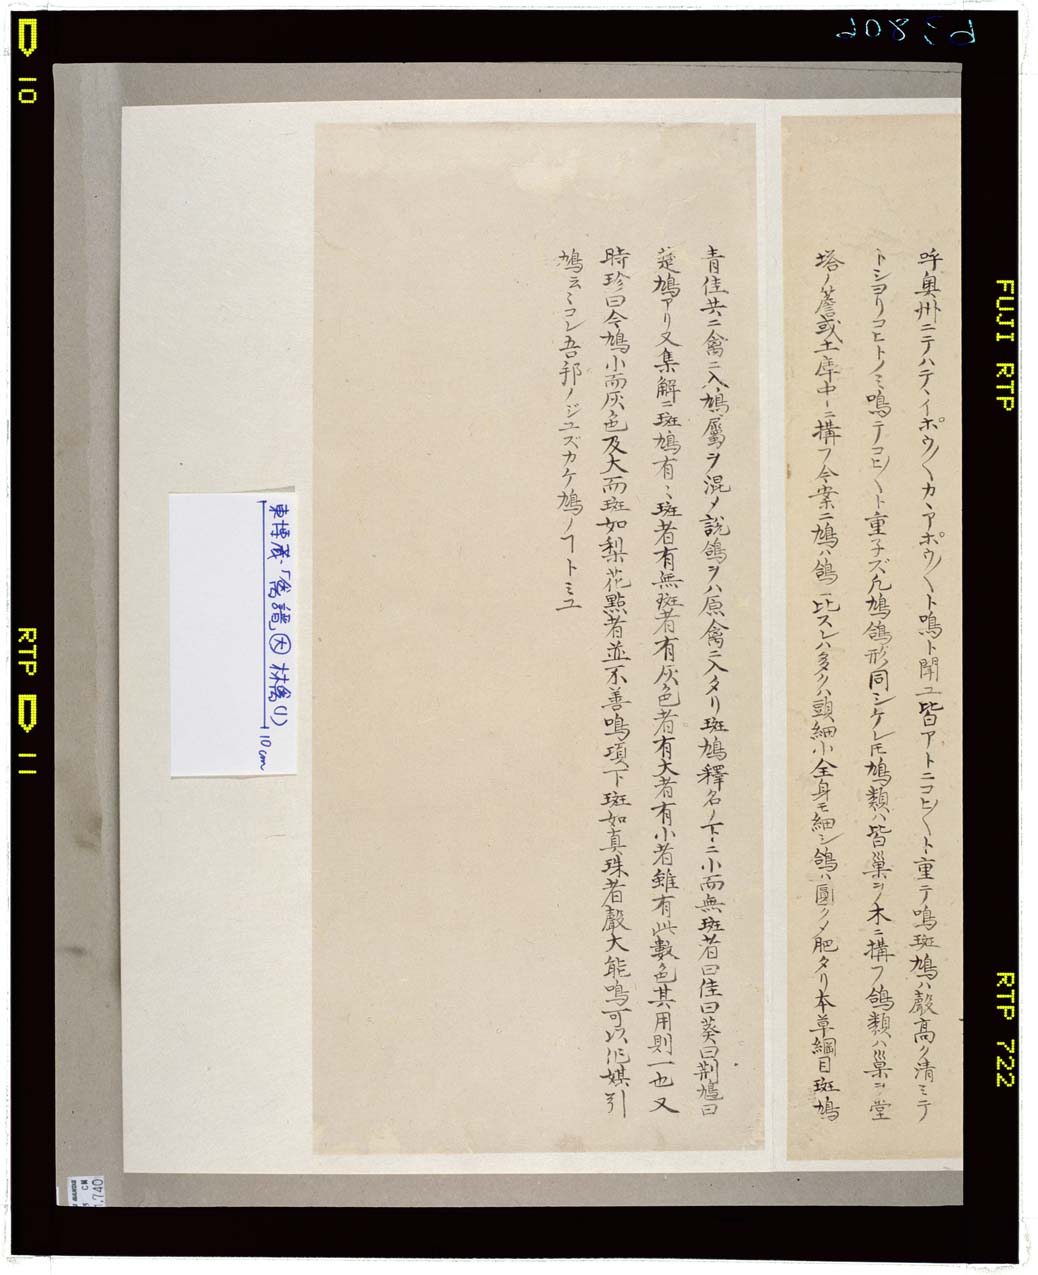 呼奥州ニテハテヽイポウ〱カヽアポウ〱ト鳴ト聞ユ皆アトニコヒ〱ト重テ鳴斑鳩ハ聲高ク清ミテ
トシヨリコヒトノミ鳴テコヒ〱ト重子ズ凡鳩鴿形同シケレ𪜈鳩類ハ皆巣ヲ木ニ構フ鴿類ハ巣ヲ堂
塔ノ簷或土庫中ニ構フ今案ニ鳩ハ鴿ニ比スレハ多クハ頭細小全身モ細シ鴿ハ圓クメ肥タリ本草綱目斑鳩
青隹共ニ禽ニ入鳩屬ヲ混メ説鴿ヲハ原禽ニ入タリ斑鳩釋名ノ下ニ小而無斑者曰隹曰䳕曰荆鳩曰
楚鳩アリ又集解ニ斑鳩有ヽ斑者有無斑者有灰色者有大者有小者雖有此數色其用則一也又
時珍曰今鳩小而灰色及大而斑如梨花點者並不善鳴項下斑如真珠者聲大能鳴可以作媒引
鳩云ミコレ吾邦ノジユズカケ鳩ノヿトミユ
東博蔵「禽譜 大 林禽(1)
10cm
10
RTP
11
FUJI RTP
RTP 722
CM
,740